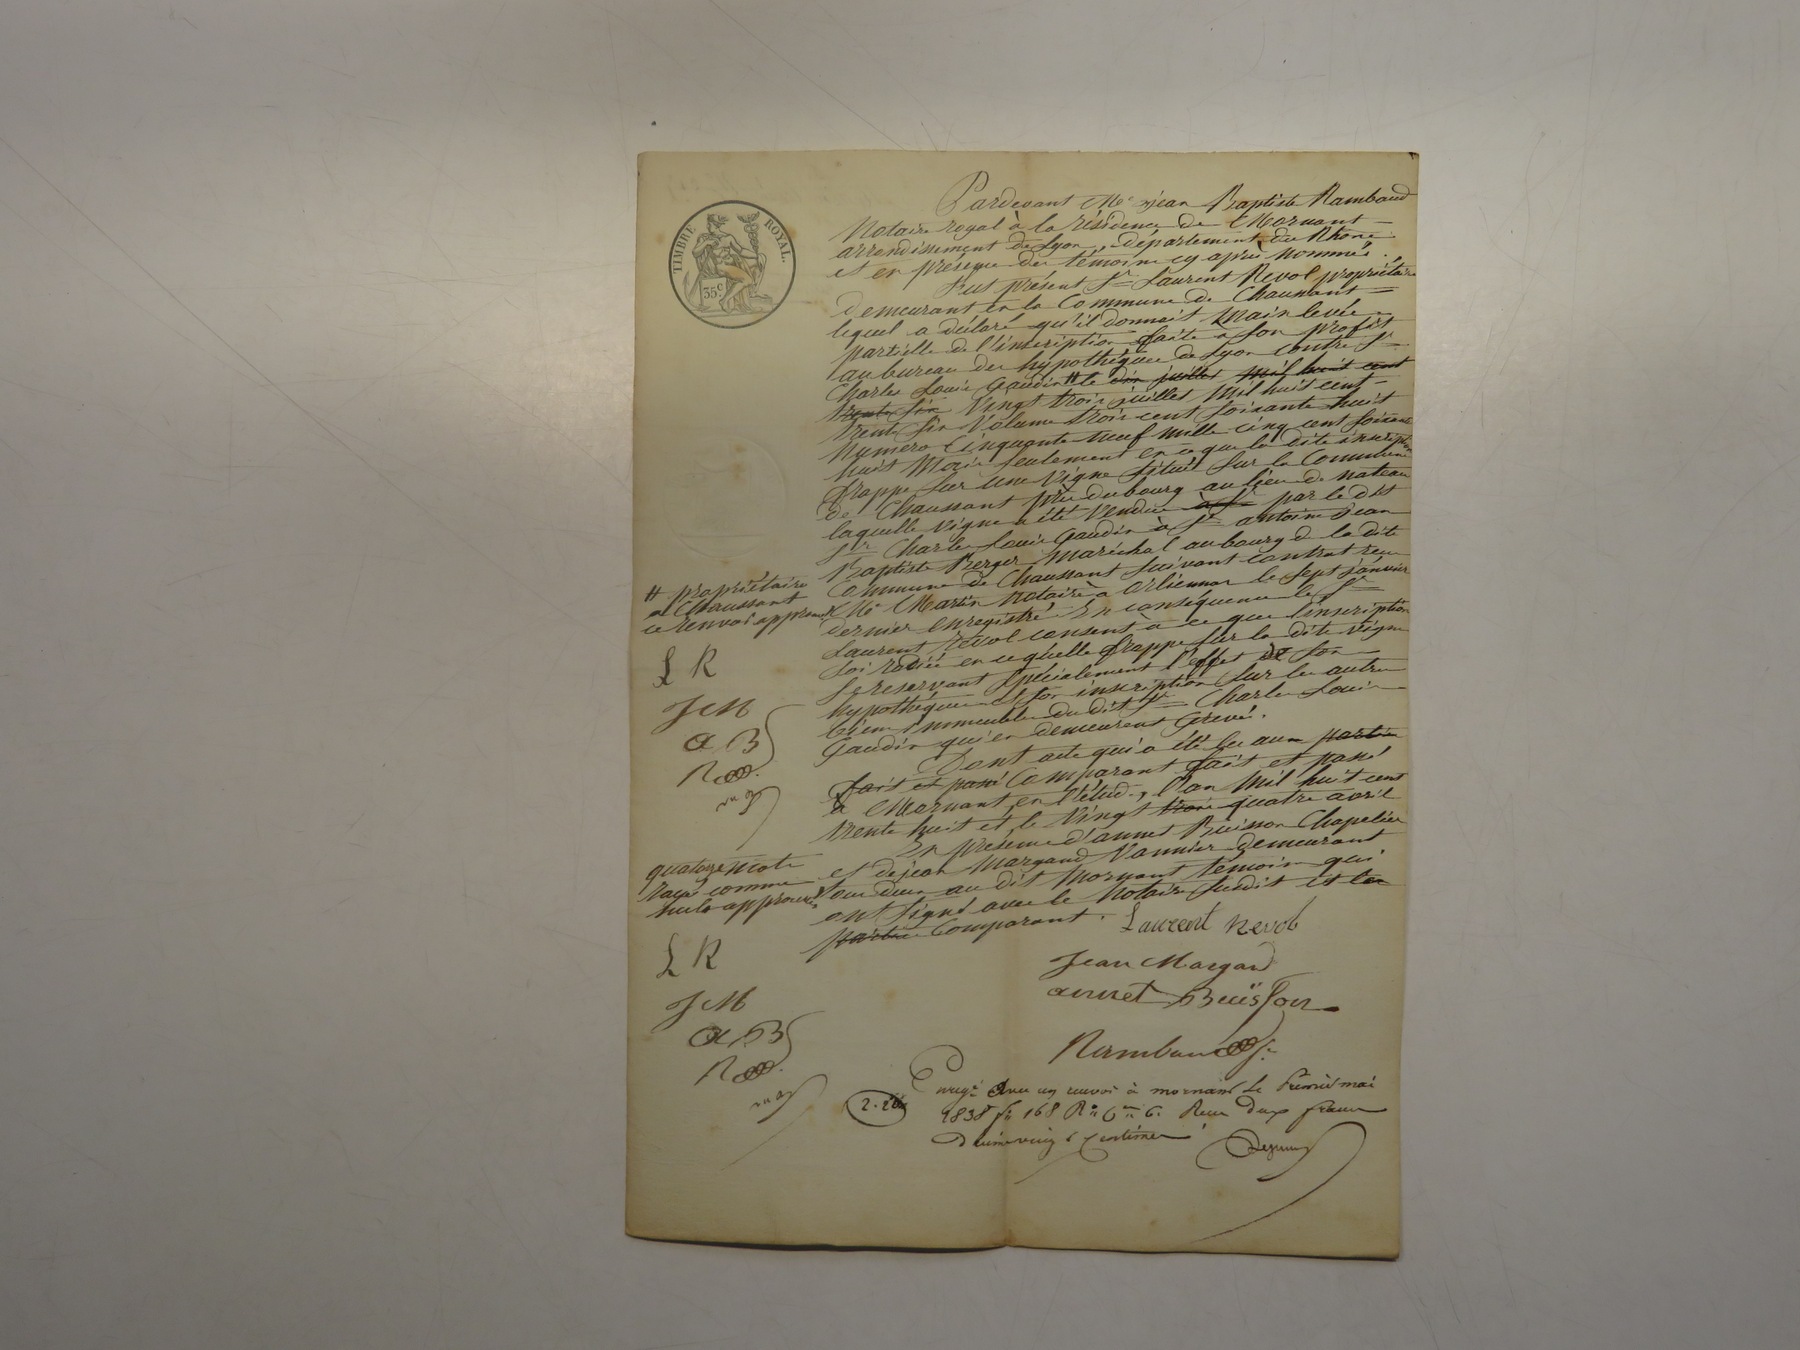 TIMBRE ROYAL.
35 c
Pardevant Me jean Baptiste Rambaud
Notaire royal à la résidence de Mornant
arrondissement de Lyon, département du Rhone
et en présence des témoins cy après nommés.
Fus présent Sr Laurent Revol propriétaire
demeurant en la Commune de Chaussant
lequel a déclaré qu'il donnait main levée
partielle de l'inscription faite a son profit
au bureau des hypothéques de Lyon contre Sr
Charles Louis Gaudin # le dix juillet mil huit cent
trente six Vingt trois juillet Mil huit cent
trente six Volume trois cent soixante huit
Numéro Cinquante neuf mille cinq cent soixante
huit Mais seulement en ce que la dite inscription
frappe sur une Vigne située sur la Commune
de Chaussant près du bourg au lieu de nateau
laquelle vigne a été vendue à Sr par le dit
Sr Charles Louis Gaudin à Sr antoine jean
Baptiste Berger Maréchal au bourg de la dite
Commune de Chaussant suivant contrat reçu
Me Martin Notaire à Orliennas le sept janvier
dernier enregistré. En conséquence le Sr
Laurent Revol consent à ce que l'inscription
soi radiée en ce qu'elle frappe sur la dite vigne
se reservant spécialement l'effet de son
hypothéque et son inscription sur les autres
biens immeubles du dit Sr Charles Louis
Gaudin qui en demeurent Grevés.
Dont acte qui a été lu aux parties
fait et passé Comparant fait et passé
à Mornant en l'étude, l'an Mil huit cent
trente huit et le Vingt trois quatre avril
En présence d'annet Buisson Chapelier
et de jean Margand Vannier demeurant
tous deux au dit Mornant témoins qui
ont signé avec le Notaire susdit et les
parties Comparant.
# propriétaire
a Chaussant
ce renvoi approuvé
L R
J M
a B
R
quatorze mots
rayés comme
nuls approuvés
L R
J M
a B
R
Laurent Revol
Jean Margand
annet Buisson
Rambaud
Enregé avec un renvoi à mornant le Premier mai
1838 fo 168 Ro Ce 6. Reçu deux francs
Décime vingt centimes
2.20